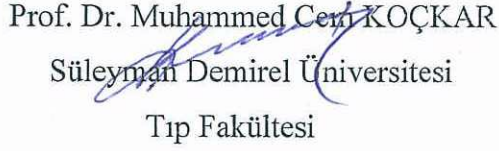 Prof. Dr. Muhammed Cem KOÇKAR
Süleyman Demirel Üniversitesi
Tıp Fakültesi